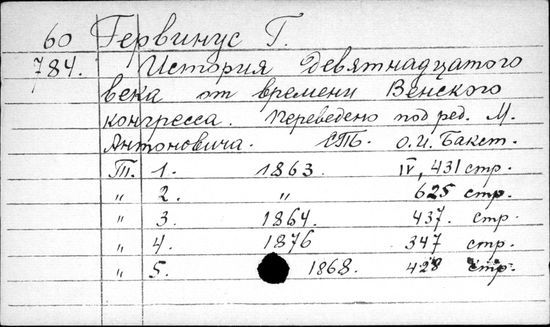 60 Гервинус Г.
784. История девятнадцатого
века от времени Венского
конгресса. Переведено под ред. М.
Антоновича. СПб. О.И. Бакст.
Т. 1. 1863. IV, 431 стр.
„ 2. „ 625 стр.
„ 3. 1864. 437. стр.
„ 4. 1876 347 стр.
„ 5. 1868. 428 стр.